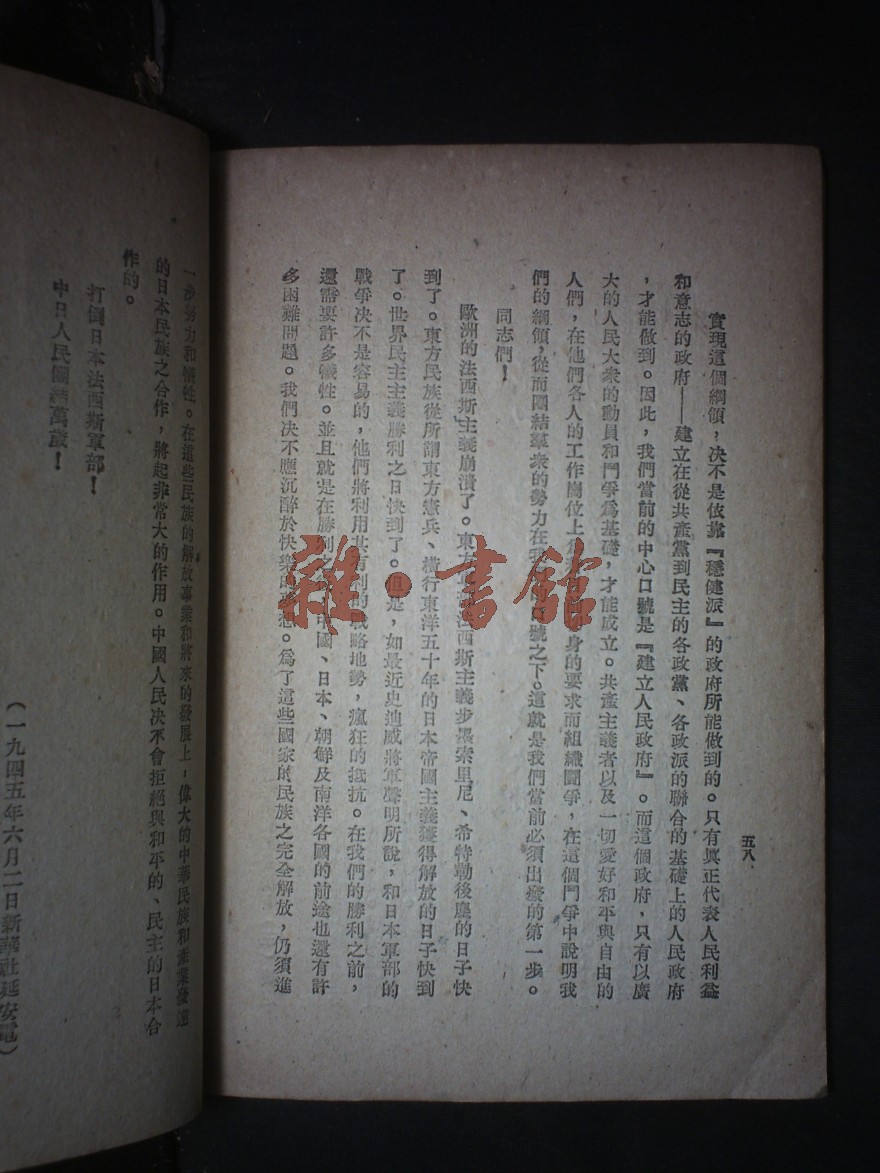 五八
實現這個綱領，決不是依靠『穩健派』的政府所能做到的。只有眞正代表人民利益
和意志的政府——建立在從共產黨到民主的各政黨、各政派的聯合的基礎上的人民政府
，才能做到。因此，我們當前的中心口號是『建立人民政府』。而這個政府，只有以廣
大的人民大衆的動員和鬥爭爲基礎，才能成立。共產主義者以及一切愛好和平與自由的
人們，在他們各人的工作崗位上身的要求而組織鬪爭，在這個鬥爭中說明我
們的綱領，從而團結羣衆的勢力在我號之下。這就是我們當前必須出發的第一步。
同志們！
歐洲的法西斯主義崩潰了。東方法西斯主義步墨索里尼、希特勒後塵的日子快
到了。東方民族從所謂東方憲兵、橫行東洋五十年的日本帝國主義獲得解放的日子快到
了。世界民主主義勝利之日快到了。但是，如最近史迪威將軍聲明所說，和日本軍部的
戰爭決不是容易的，他們將利用其有利的戰略地勢，瘋狂的抵抗。在我們的勝利之前，
還需要許多犧牲。並且就是在勝利之中國、日本、朝鮮及南洋各國的前途也還有許
多困難問題。我們決不應沉醉於快樂的夢想。爲了這些國家的民族之完全解放，仍須進
一步努力和犧牲。在這些民族的解放事業和將來的發展上，偉大的中華民族和產業發達
的日本民族之合作，將起非常大的作用。中國人民決不會拒絕與和平的、民主的日本合
作的。
打倒日本法西斯軍部！
中日人民團結萬歲！
（一九四五年六月二日新華社延安電）
雜·書館